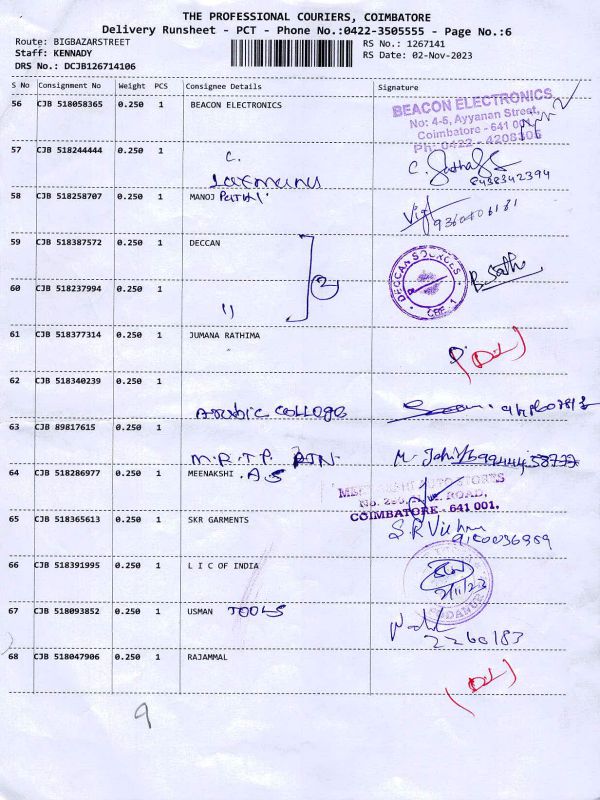 THE PROFESSIONAL COURIERS, COIMBATORE
Delivery Runsheet - PCT - Phone No.:0422-3505555 - Page No.:6
Route: BIGBAZARSTREET
Staff: KENNADY
DRS No.: DCJB126714106
RS No.: 1267141
RS Date: 02-Nov-2023
S No Consignment No Weight PCS Consignee Details Signature
56 CJB 518058365 0.250 1 BEACON ELECTRONICS
BEACON ELECTRONICS
No: 4-5, Ayyanan Street,
Coimbatore - 641 001
Ph: 0422 - 4208305
57 CJB 518244444 0.250 1 C.
Laxmanan C.
8438342394
58 CJB 518258707 0.250 1 MANOJ
59 CJB 518387572 0.250 1 DECCAN
DECCAN SOURCES
CBE - 1
B. Sath
2
60 CJB 518237994 0.250 1 "
61 CJB 518377314 0.250 1 JUMANA RATHIMA
(DL)
62 CJB 518340239 0.250 1
Arabic College
63 CJB 89817615 0.250 1
M.R.T.P. M.
64 CJB 518286977 0.250 1 MEENAKSHI . A S
MEENAKSHI AUTO STORES
ROAD,
COIMBATORE - 641 001.
65 CJB 518365613 0.250 1 SKR GARMENTS
S.R
66 CJB 518391995 0.250 1 L I C OF INDIA
2/11/23
67 CJB 518093852 0.250 1 USMAN TOOLS
2260183
68 CJB 518047906 0.250 1 RAJAMMAL
(DL)
9